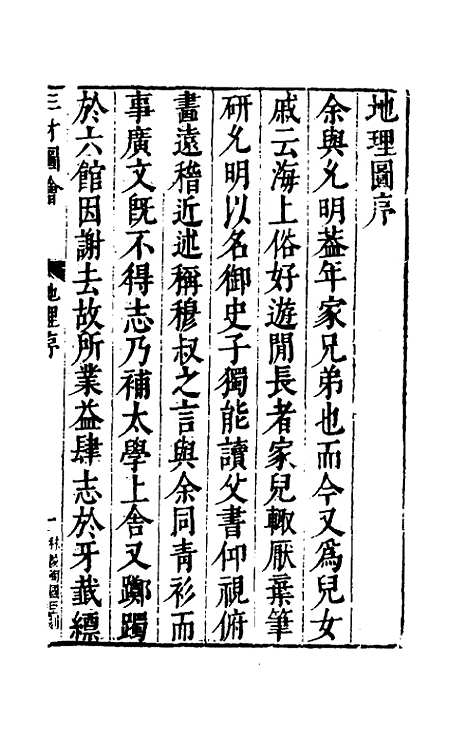 地理圖序
余與允明葢年家兄弟也而今又爲兒女
戚云海上俗好遊閒長者家兒輙厭棄筆
研允明以名御史子獨能讀父書仰視俯
畫遠稽近述稱穆叔之言與余同青衫而
事廣文旣不得志乃補太學上舎又躑躅
於六館因謝去故所業益肆志於牙籖縹
三才圖會
地理序
一